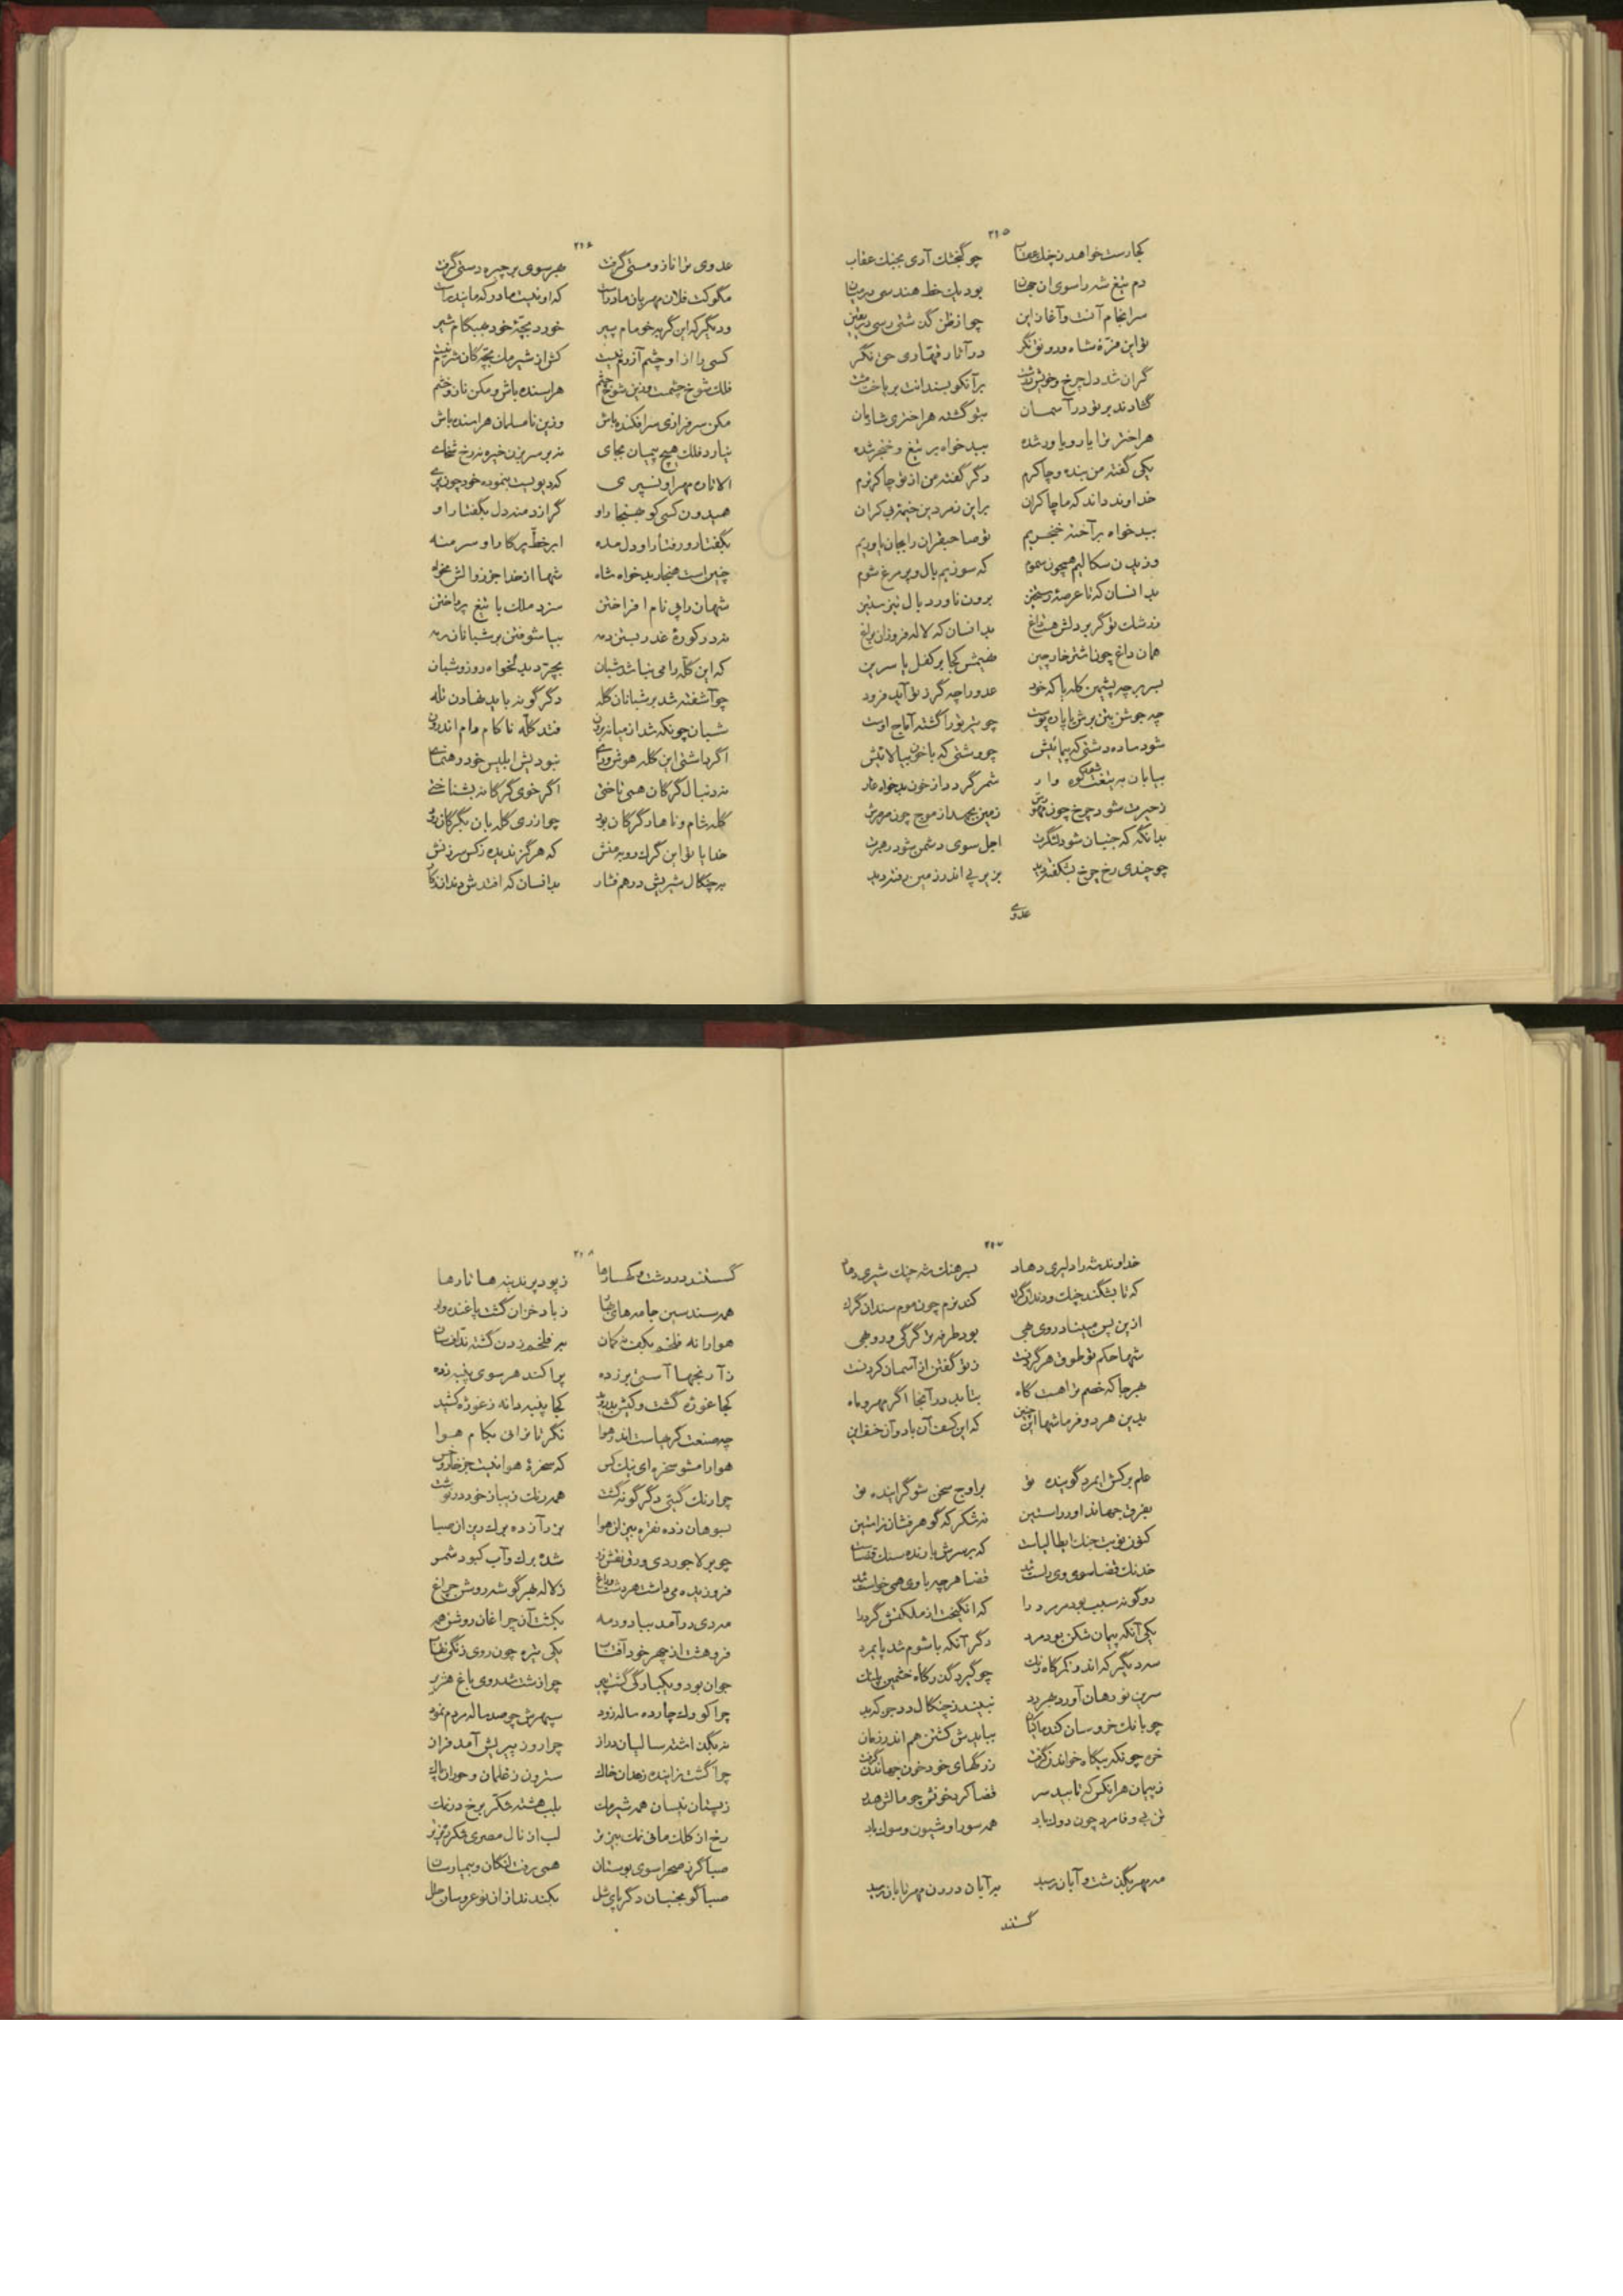 ۲۲۵
کجا رست خواهد ز چنگ عقاب چو گنجشک آری بجنگ عقاب
دم تیغ شه را سوی آن جهان بود یک خط هندسی در میان
سرانجام آنست و آغاز این چو از ظن گذشتی رسی در یقین
تو این فرّهٔ شاه و رونق نگر در آثار قهّاری حق نگر
گران شد دل چرخ و خویش درشت بر آنکو بسندانت بر یاخت مشت
گشادند بر تو در آسمان بتو گشته هر اختری شادمان
هر اختر ترا یار و یاور شده ببدخواه بر تیغ و خنجر شده
یکی گفته من بنده و چاکرم دگر گفته من از تو چاکرترم
خداوند داند که ما چاکران بر این زمردین خیمه بی کران
ببدخواه بر آخته خنجریم تو صاحبقران را بجان یاوریم
وزیدن سگالیم همچون سموم که سوزیم بال و پر مرغ شوم
بدانسان که تا عرصهٔ رستخیز برون ناورد بال نیز
ز رشک تو گر بر دلش هست داغ بدانسان که لاله فروزان براغ
همان داغ چون اشتر خارچین نهیمش کجا بر کفل یا سرین
بسر بر چه پشمین کله یا که خود عدو را چه گرز تو آید فرود
چه جوشن بتن برش یا پاره پوست چو تیر تو را گشته آماج اوست
شود ساده دشتی که پیمائیش چو دشتی که با خون بیالائیش
بیابان به تیغت شود کوه وار شمر گردد از خون بدخواه غار
ز حیرت شود چرخ چون زمین بجهد از موج چون
بدانگه که جنبان شود لشگرت اجل سوی دشمن شود رهبرت
چو خندی رخ چرخ بشکفته دید بزیر پی اندر زمین رفته دید
عدوی
۲۲۶
عدوی ترا ناز و مستی گرفت بهر سوی بر چیره دستی گرفت
مگو کت فلان مهربان مادر است که او نیست مادر که مایندر است
و دیگر که این گربه خو مام پیر خورد بچّهٔ خود بهنگام شیر
کسی را از او چشم آزرم نیست کش از شیر مک بچّه گان شرم نیست
فلک شوخ چشمست وزین شوخ چشم هراسنده باش و مکن ناز و خشم
مکن سرفرازی سرافکنده باش وزین نامسلمان هراسنده باش
نیارد فلک هیچ پیمان بجای مزن خیره رخ
الا تا ره مهر او نسپری که دیویست بنموده خود چون پری
همیدون کسی کو بهنجار او گراز دمند دل بگفتار او
بگفتار و رفتار او دل مده ابر خطّ پرگار او سر منه
چنین است هنجار بدخواه شاه شها از خدا جز زوالش مخواه
شهان را پی نام افراختن سزد ملک با تیغ پرداختن
نه در کورهٔ غدر بستن دمه بیاشوفتن بر شبانان رمه
که این گلّه را می نباشد شبان بچر بدلخواه روز و شبان
چو آشفته شد بر شبانان گله دگرگونه باید نهادن تله
شبان چونکه شد از میانه برون فتد گلّه ناکام دام اندرون
اگر داشتی این گله هوش و رای نبودیش ابلیس خود رهنمای
نه دنبال گرگان همی تاختی اگر خوی گرگانه بشناختی
گله شام و ناهار گرگان بود چو ازدی گله بان بگرگان رود
خدایا تو این گرگ روبه منش که هرگز ندیده ز کس سرزنش
به چنگال شیریش درهم فشار بدانسان که افتدش دندان ز کار
۲۲۷
خداوند شه را دلیری دهاد بسرهنگ شه چنگ شیری دهاد
که تا بشکند چنگ و دندان گرگ کند نرم چون موم سندان گرگ
ازین پس مبیناد روی بهی بود طرفه تر گرگی و روبهی
شها حکم تو طوق هر گردنست ز تو گفتن از آسمان کردنست
بهر جا که خصم ترا هست گاه بتابد در آنجا اگر مهر و ماه
بدین هر دو فرما شها این چنین که این کسف آن باد و آن خسف این
علم برکش ای مرد گوینده تو بر اوج سخن شو گراینده تو
بفرق جهاندا و در آستین نه شکّر که گوهر فشان ز آستین
کنون نوبت جنگ ابطالیاست که بر سرش بارنده سنگ قضاست
خدنگ قضا سوی وی راست شد قضا هر چه با وی همی خواست شد
دو گونه سبب بود مر مرد را که انگیخت از ملکتش گرد را
یکی آنکه پیمان شکن بود مرد دگر آنکه با شوم شد پایمرد
سه دیگر که اندر کمرگاه رنگ چو گیرد گذرگاه خشمین پلنگ
سرین تو دهان آورد نبیند ز چنگال درد جز گزند
چو بانگ خروسان کند ماکیان ببایدش کشتن هم اندر زمان
خره چونکه بیگاه خواندن گرفت ز رگهای خود خون جهاندن گرفت
ز پیمان هر آنکس که تابید سر قضا کرد خونش چو مالش هدر
تن بی وفا مرد چون دوک باد همه سور او شیون و سوک باد
مه مهر بگذشت و آبان رسید مر آبان درون مهر تابان رسید
گسستند
۲۲۸
گسستند در دشت و کهسارها ز پود پرندینه ها تارها
همه سندسین جامه های رزان ز باد خزان گشت یاغنده وز
هوا را نه فلخم بکف نه کمان بر فلخم زدن گشته ندّاف سان
ز آرنجها آستی بر زده پراکند هر سوی پنبه زده
کجا غوزه گشت و کیش کجا پنبه دانه ز غوزه کشید
چه صنعت گریهاست اندر هوا نگر تا نرانی بکام هوا
هوا را مشو سخره ای نیک کس که سخرهٔ هوا نیست جز خار و خس
چرا رنگ گیتی دگرگونه گشت همه رنگ زیبا ز خود در نوشت
بسوهان زده نقره بین از هوا بزر آژده برگ ریزان صبا
چو بر لاجوردی ورق نقش زر شده برگ و آب کبود شمر
فروزیده می داشت هر دشت و باغ ز لاله بهر گوشه روشن چراغ
مه دی درآمد بباد و دمه بکشت آن چراغان روشن همه
فروهشت از چهر خود آفتاب یکی تیره چون روی زنگی نقاب
جوان بود و یکبارگی گشت پیر چو از شست شد روی باغ هژیر
چرا کودک چارده ساله زود سپهرش چو صد ساله مردم نمود
نه بگذاشته سالیان دراز چرا روز پیریش آمد فراز
چرا گشت زاینده زهدان خاک سترون ز غلمان و حوران پاک
ز پستان نیسان همه شیر مک بلب هشته شکّر برخ در نمک
رخ از کلک مانی نمک بیزتر لب از نال مصری شکر ریزتر
صبا گرز صحرا سوی بوستان همی رفت لنگان و بیمارسان
صبا گو بجنبان دگر پای شل بکندند از آن نو عروسان حلل